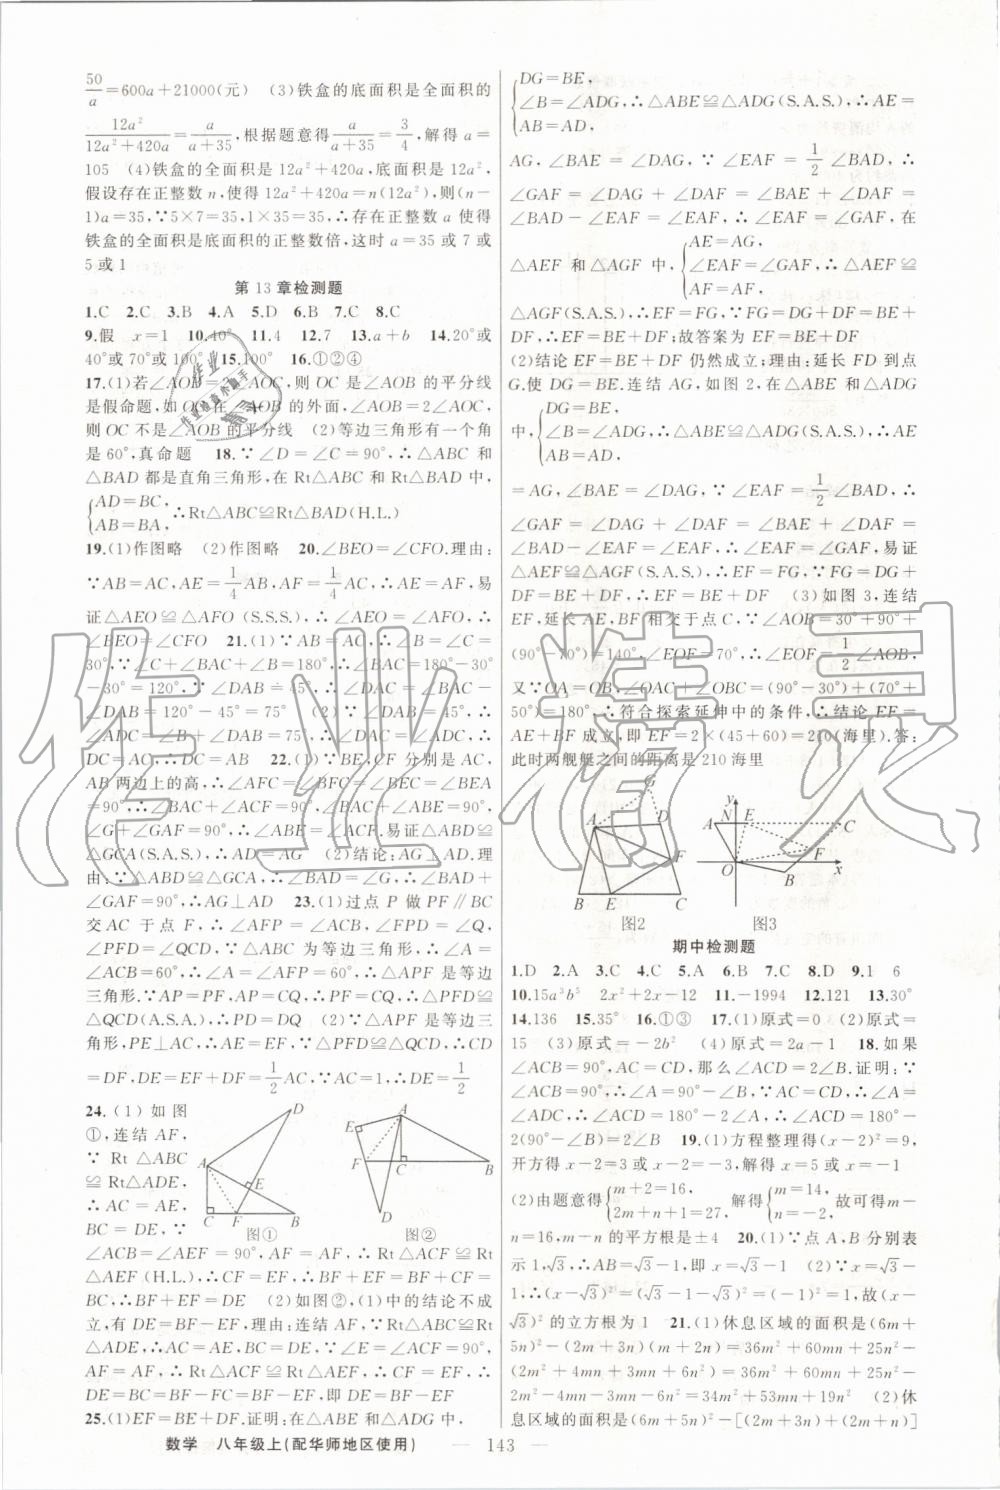 50/a=600a+21000(元) (3)铁盒的底面积是全面积的
12a²/(12a²+420a)=a/(a+35),根据题意得a/(a+35)=3/4,解得a=
105 (4)铁盒的全面积是12a²+420a,底面积是12a²,
假设存在正整数n,使得12a²+420a=n(12a²),则(n-
1)a=35,∵5×7=35,1×35=35,∴存在正整数a使得
铁盒的全面积是底面积的正整数倍,这时a=35或7或
5或1
第13章检测题
1.C 2.C 3.B 4.A 5.D 6.B 7.C 8.C
9.假 x=1 10.40° 11.4 12.7 13.a+b 14.20°或
40°或70°或100° 15.100° 16.①②④
17.(1)若∠AOB=2∠AOC,则OC是∠AOB的平分线
是假命题,如OC在∠AOB的外面,∠AOB=2∠AOC,
则OC不是∠AOB的平分线 (2)等边三角形有一个角
是60°,真命题 18.∵∠D=∠C=90°,∴△ABC和
△BAD都是直角三角形,在Rt△ABC和Rt△BAD中,
{AD=BC,
AB=BA, ∴Rt△ABC≌Rt△BAD(H.L.)
19.(1)作图略 (2)作图略 20.∠BEO=∠CFO.理由:
∵AB=AC,AE=1/4AB,AF=1/4AC,∴AE=AF,易
证△AEO≌△AFO (S.S.S.),∴∠AEO=∠AFO,∴
∠BEO=∠CFO 21.(1)∵AB=AC,∴∠B=∠C=
30°,∵∠C+∠BAC+∠B=180°,∴∠BAC=180°-30°
-30°=120°,∵∠DAB=45°,∴∠DAC=∠BAC-
∠DAB=120°-45°=75° (2)∵∠DAB=45°,∴
∠ADC=∠B+∠DAB=75°,∴∠DAC=∠ADC,∴
DC=AC,∴DC=AB 22.(1)∵BE,CF分别是AC,
AB两边上的高,∴∠AFC=∠BFC=∠BEC=∠BEA
=90°,∴∠BAC+∠ACF=90°,∠BAC+∠ABE=90°,
∠G+∠GAF=90°,∴∠ABE=∠ACF.易证△ABD≌
△GCA(S.A.S.),∴AD=AG (2)结论:AG⊥AD.理
由:∵△ABD≌△GCA,∴∠BAD=∠G,∴∠BAD+
∠GAF=90°,∴AG⊥AD 23.(1)过点P做PF∥BC
交AC于点F,∴∠AFP=∠ACB,∠FPD=∠Q,
∠PFD=∠QCD,∵△ABC为等边三角形,∴∠A=
∠ACB=60°,∴∠A=∠AFP=60°,∴△APF是等边
三角形.∵AP=PF,AP=CQ,∴PF=CQ,∴△PFD≌
△QCD(A.S.A.),∴PD=DQ (2)∵△APF是等边三
角形,PE⊥AC,∴AE=EF,∵△PFD≌△QCD,∴CD
=DF,DE=EF+DF=1/2AC,∵AC=1,∴DE=1/2
24.(1)如图
①,连结AF,
∵Rt△ABC
≌Rt△ADE,
∴AC=AE,
BC=DE,∵
D
A
E
C
F
B
图①
A
E
F
C
B
D
图②
∠ACB=∠AEF=90°,AF=AF,∴Rt△ACF≌Rt
△AEF(H.L.),∴CF=EF,∴BF+EF=BF+CF=
BC,∴BF+EF=DE (2)如图②,(1)中的结论不成
立,有DE=BF-EF,理由:连结AF,∵Rt△ABC≌Rt
△ADE,∴AC=AE,BC=DE,∵∠E=∠ACF=90°,
AF=AF,∴Rt△ACF≌Rt△AEF,∴CF=EF,∴
DE=BC=BF-FC=BF-EF,即DE=BF-EF
25.(1)EF=BE+DF.证明:在△ABE和△ADG中,
{DG=BE,
∠B=∠ADG,∴△ABE≌△ADG(S.A.S.),∴AE=
AB=AD,
AG,∠BAE=∠DAG,∵∠EAF=1/2∠BAD,∴
∠GAF=∠DAG+∠DAF=∠BAE+∠DAF=
∠BAD-∠EAF=∠EAF,∴∠EAF=∠GAF,在
△AEF和△AGF中,{AE=AG,
∠EAF=∠GAF,∴△AEF≌
AF=AF,
△AGF(S.A.S.),∴EF=FG,∵FG=DG+DF=BE+
DF,∴EF=BE+DF;故答案为EF=BE+DF
(2)结论EF=BE+DF仍然成立;理由:延长FD到点
G.使DG=BE.连结AG,如图2,在△ABE和△ADG
中,{DG=BE,
∠B=∠ADG,∴△ABE≌△ADG(S.A.S.),∴AE
AB=AD,
=AG,∠BAE=∠DAG,∵∠EAF=1/2∠BAD,∴
∠GAF=∠DAG+∠DAF=∠BAE+∠DAF=
∠BAD-∠EAF=∠EAF,∴∠EAF=∠GAF,易证
△AEF≌△AGF(S.A.S.),∴EF=FG,∵FG=DG+
DF=BE+DF,∴EF=BE+DF (3)如图3,连结
EF,延长AE,BF相交于点C,∵∠AOB=30°+90°+
(90°-70°)=140°,∠EOF=70°,∴∠EOF=1/2∠AOB,
又∵OA=OB,∠OAC+∠OBC=(90°-30°)+(70°+
50°)=180°,∴符合探索延伸中的条件,∴结论EF=
AE+BF成立,即EF=2×(45+60)=210(海里).答:
此时两舰艇之间的距离是210海里
G
A
D
F
B
E
C
图2
y
A
N
E
C
F
O
B
x
图3
期中检测题
1.D 2.A 3.C 4.C 5.A 6.B 7.C 8.D 9.1 6
10.15a³b⁵ 2x²+2x-12 11.-1994 12.121 13.30°
14.136 15.35° 16.①③ 17.(1)原式=0 (2)原式=
15 (3)原式=-2b² (4)原式=2a-1 18.如果
∠ACB=90°,AC=DC,那么∠ACD=2∠B.证明:∵
∠ACB=90°,∴∠A=90°-∠B,∵AC=DC,∴∠A=
∠ADC,∴∠ACD=180°-2∠A,∴∠ACD=180°-
2(90°-∠B)=2∠B 19.(1)方程整理得(x-2)²=9,
开方得x-2=3或x-2=-3,解得x=5或x=-1
(2)由题意得{m+2=16,
2m+n+1=27, 解得{m=14,
n=-2, 故可得m-
n=16,m-n的平方根是±4 20.(1)∵点A,B分别表
示1,√3,∴AB=√3-1,即x=√3-1 (2)∵x=√3-
1,∴(x-√3)²=(√3-1-√3)²=(-1)²=1,故(x-
√3)²的立方根为1 21.(1)休息区域的面积是(6m+
5n)²-(2m+3n)(4m+2n)=36m²+60mn+25n²-
(2m²+4mn+3mn+6n²)=36m²+60mn+25n²-
2m²-4mn-3mn-6n²=34m²+53mn+19n² (2)休
息区域的面积是(6m+5n)²-[(2m+3n)+(4m+2n)]
数学 八年级上(配华师地区使用) — 143 —
作业精灵